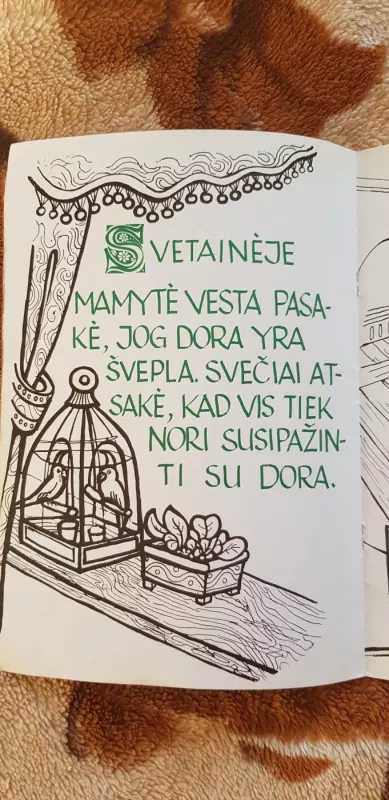 SVETAINĖJE
MAMYTĖ VESTA PASA-
KĖ, JOG DORA YRA
ŠVEPLA. SVEČIAI AT-
SAKĖ, KAD VIS TIEK
NORI SUSIPAŽIN-
TI SU DORA.